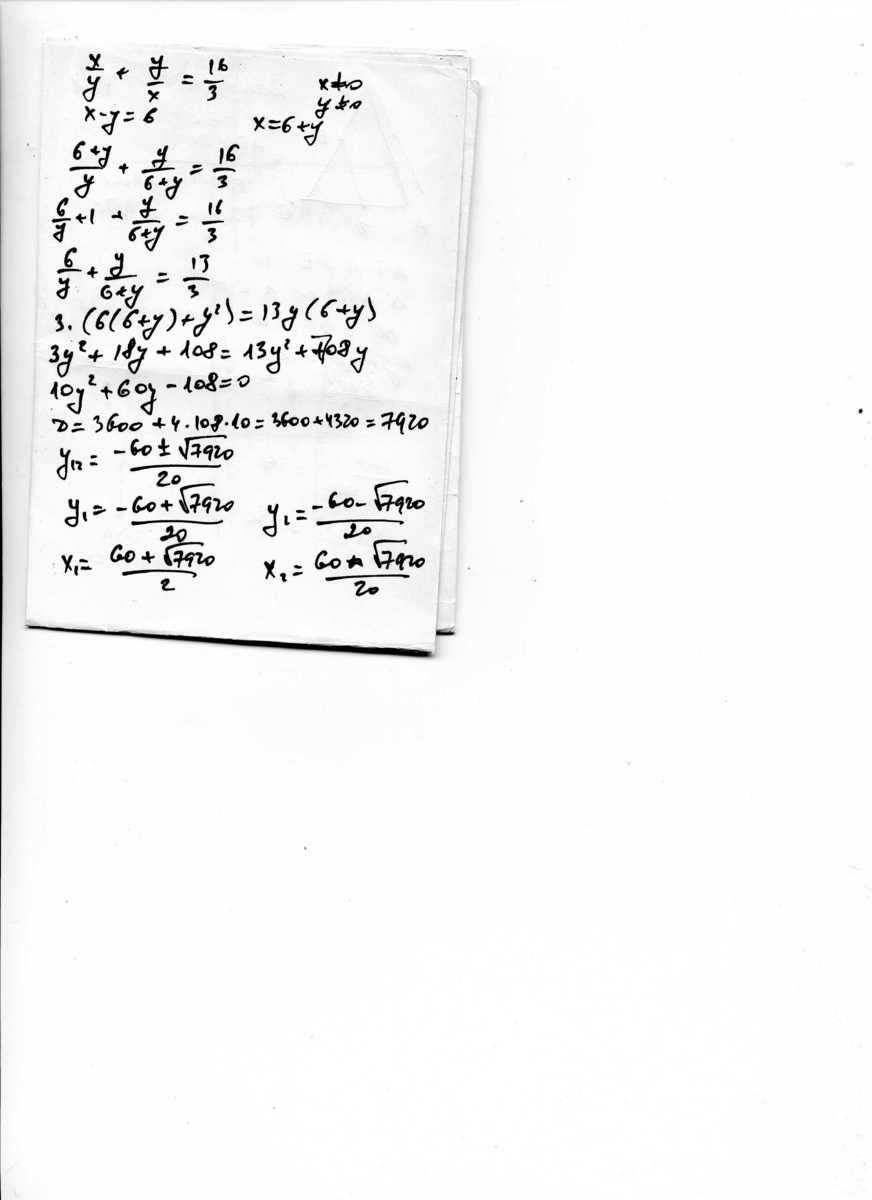 x/y + y/x = 16/3 x≠0
x-y=6 y≠0
x=6+y
(6+y)/y + y/(6+y) = 16/3
6/y +1 + y/(6+y) = 16/3
6/y + y/(6+y) = 13/3
3·(6(6+y)+y²)=13y(6+y)
3y²+18y+108=13y²+78y
10y²+60y-108=0
D=3600+4·108·10=3600+4320=7920
y₁₂= (-60±√7920)/20
y₁= (-60+√7920)/20 y₂= (-60-√7920)/20
x₁= (60+√7920)/2 x₂= (60-√7920)/20